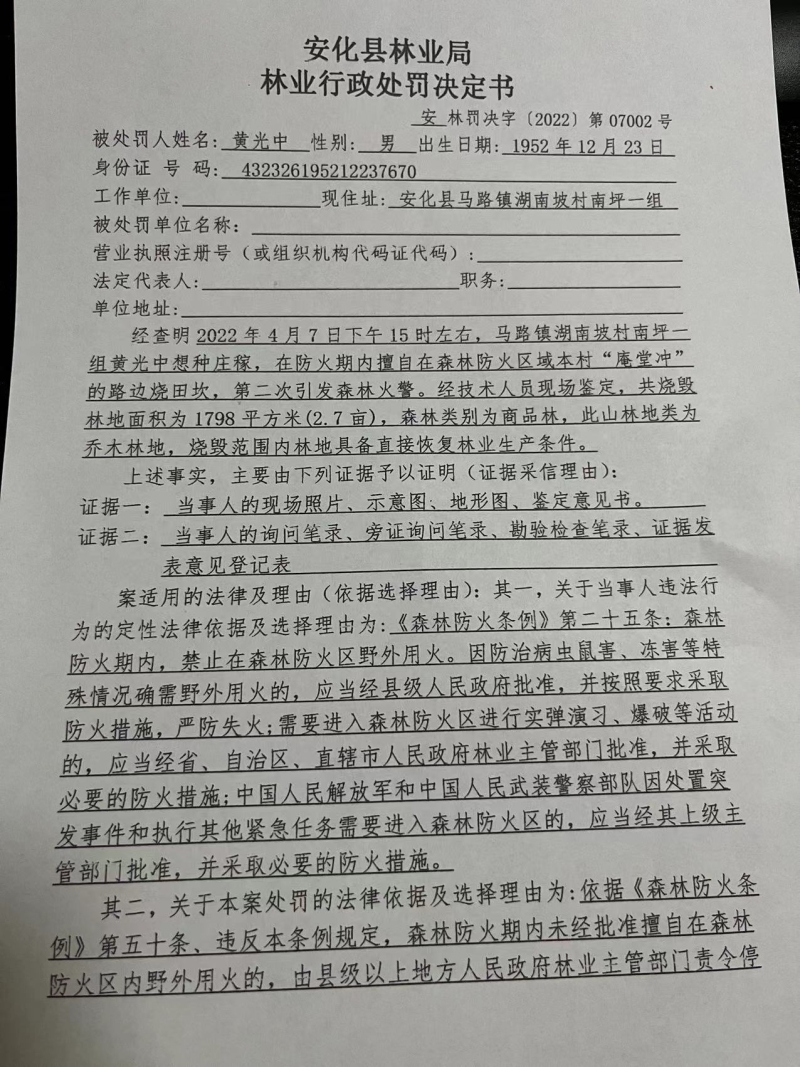 安化县林业局
林业行政处罚决定书
安 林罚决字〔2022〕第 07002 号
被处罚人姓名: 黄光中 性别: 男 出生日期: 1952 年 12 月 23 日
身份证 号 码: 432326195212237670
工作单位: 现住址: 安化县马路镇湖南坡村南坪一组
被处罚单位名称:
营业执照注册号（或组织机构代码证代码）:
法定代表人: 职务:
单位地址:
经查明 2022 年 4 月 7 日下午 15 时左右，马路镇湖南坡村南坪一
组黄光中想种庄稼，在防火期内擅自在森林防火区域本村“庵堂冲”
的路边烧田坎，第二次引发森林火警。经技术人员现场鉴定，共烧毁
林地面积为 1798 平方米(2.7 亩)，森林类别为商品林，此山林地类为
乔木林地，烧毁范围内林地具备直接恢复林业生产条件。
上述事实，主要由下列证据予以证明（证据采信理由）：
证据一： 当事人的现场照片、示意图、地形图、鉴定意见书。
证据二： 当事人的询问笔录、旁证询问笔录、勘验检查笔录、证据发
表意见登记表
案适用的法律及理由（依据选择理由）：其一，关于当事人违法行
为的定性法律依据及选择理由为:《森林防火条例》第二十五条：森林
防火期内，禁止在森林防火区野外用火。因防治病虫鼠害、冻害等特
殊情况确需野外用火的，应当经县级人民政府批准，并按照要求采取
防火措施，严防失火;需要进入森林防火区进行实弹演习、爆破等活动
的，应当经省、自治区、直辖市人民政府林业主管部门批准，并采取
必要的防火措施;中国人民解放军和中国人民武装警察部队因处置突
发事件和执行其他紧急任务需要进入森林防火区的，应当经其上级主
管部门批准，并采取必要的防火措施。
其二，关于本案处罚的法律依据及选择理由为:依据《森林防火条
例》第五十条、违反本条例规定，森林防火期内未经批准擅自在森林
防火区内野外用火的，由县级以上地方人民政府林业主管部门责令停